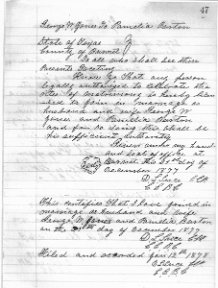 47
George W. Jones To Pamelia Burton
State of Texas
County of Burnet
To all who shall see these
Presents Greeting
Know ye That any person
legally authorized to celebrate the
rites of matrimony is hereby licen
sed to join in marriage as
husband and wife George W.
Jones and Pamelia Burton
and for so doing this shall be
his sufficient authority
Witness under my hand
and seal of office at
Burnet this 31st day of
December 1877
This certifies That I have joined in
marriage as husband and wife
George W. Jones and Pamelia Burton
on the day of December 1877
Filed and recorded Jan 12th 1878